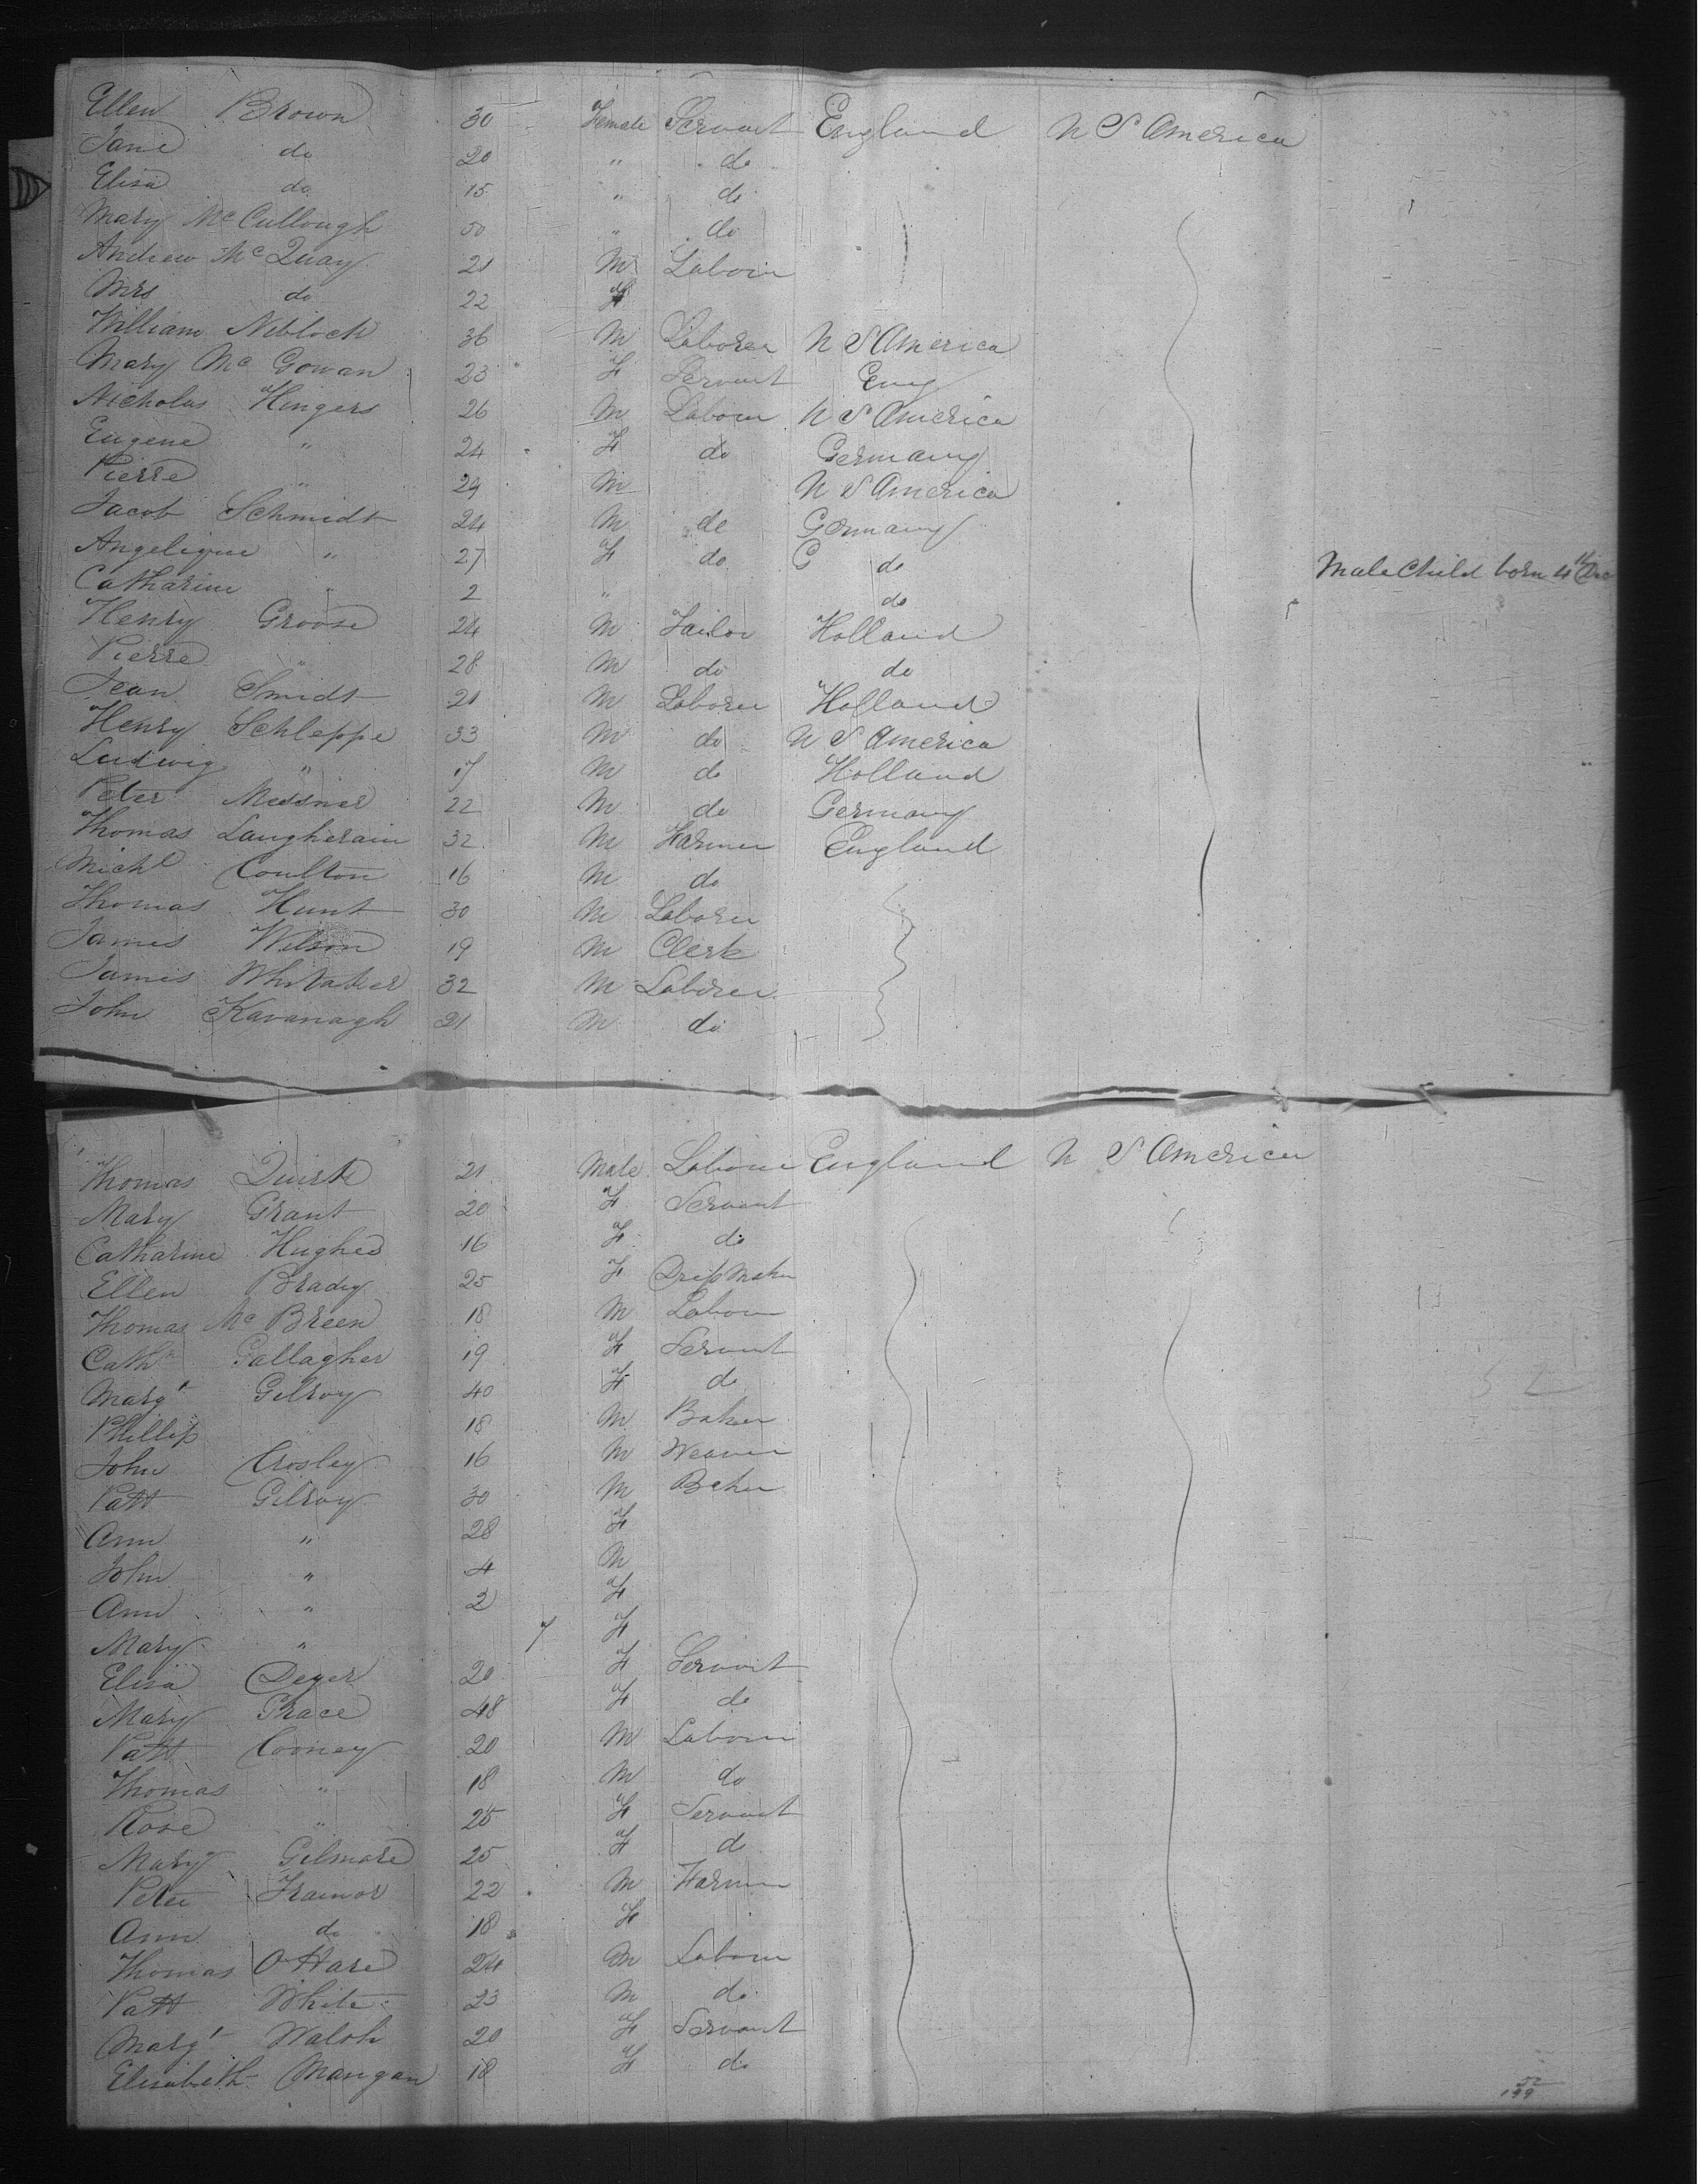 Ellen Brown 30 Female Servant England U S America
Jane do 20 " do
Elisa do 15 " do
Mary McCullough 50 " do
Andrew McQuay 21 M Laborer
Mrs do 22 F
William Niblock 36 M Laborer U S America
Mary McGowan 23 F Servant Eng
Nicholas Hingers 26 M Laborer U S America
Eugene " 24 F do Germany
Pierre " 29 M U S America
Jacob Schmidt 24 M do Germany
Angelique " 27 F do G do Male Child born 4th Dec
Catharine " 2 " do
Henry Groose 24 M Tailor Holland
Pierre " 28 M do do
Jean Smidt 21 M Laborer Holland
Henry Schleppe 33 M do U S America
Ludwig " 17 M do Holland
Peter Messner 22 M do Germany
Thomas Laugherain 32 M Farmer England
Michl Coulton 16 M do
Thomas Hunt 30 M Laborer
James Wilson 19 M Clerk
James Whitaker 32 M Laborer
John Kavanagh 21 M do
Thomas Quirk 21 Male Laborer England U S America
Mary Grant 20 F Servant
Catharine Hughes 16 F do
Ellen Brady 25 F Dress Maker
Thomas McBreen 18 M Laborer
Cath Gallagher 19 F Servant
Margt Gilroy 40 F do
Phillip " 18 M Baker
John Crosley 16 M Weaver
Patt Gilroy 30 M Baker
Ann " 28 F
John " 4 M
Ann " 2 F
Mary " 7 F
Elisa Deyer 20 F Servant
Mary Grace 48 F do
Patt Cooney 20 M Laborer
Thomas " 18 M do
Rose " 25 F Servant
Mary Gilmore 25 F do
Peter Trainor 22 M Farmer
Ann do 18 F
Thomas O'Hare 24 M Laborer
Patt White 23 M do
Margt Walsh 20 F Servant
Elisabeth Mangan 18 F do
52
199